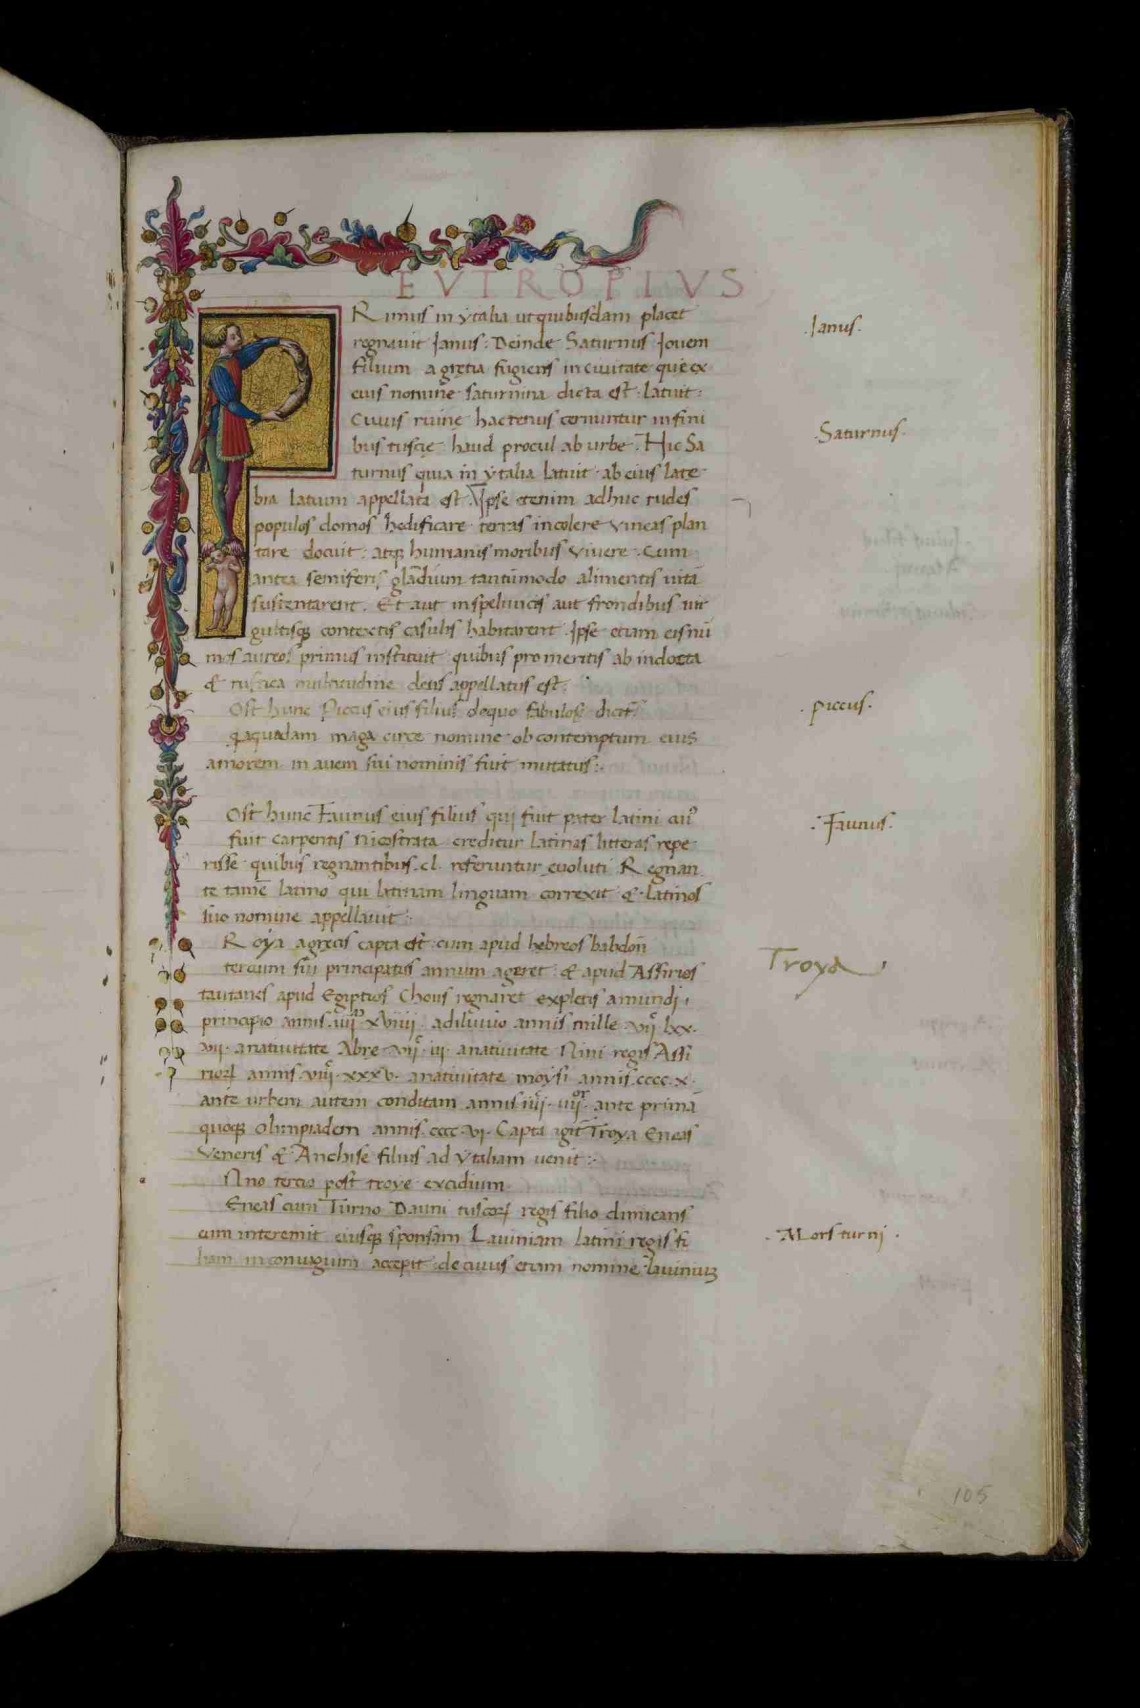 EVTROPIVS
Rimus in ytalia ut quibusdam placet
regnavit Janus: Deinde Saturnus Jovem
filium agretia fugiens in civitate que ex
eius nomine saturnina dicta est. latuit:
Cuius ruine hactenus cernuntur in fini
bus tuscie haud procul ab urbe. Hic Sa
turnus quia in ytalia latuit ab eius late
bia latium appellata est. Ipse etenim adhuc rudes
populos domos hedificare terras incolere vineas plan
tare docuit: atq; humanis moribus vivere. Cum
antea semiferis glādium tantūmodo alimentis uitā
sustentarent. Et aut in speluncis aut frondibus uir
gultisq; contextis casulis habitarent. Ipse etiam eis nū
mos aureos primus instituit quibus pro meritis ab indocta
& rustica multitudine deus appellatus est.
Ost hunc Piccus eius filius de quo fabulose dicit
quadam maga circe nomine ob contemptum eius
amorem in avem sui nominis fuit mutatus:
Ost hunc Faunus eius filius qui fuit pater latini
fuit carpentis Nicostrata creditur latinas litteras repe
risse quibus regnantibus .cl. referuntur evoluti Regnan
te tamē latino qui latinam linguam correxit & latinos
suo nomine appellavit:
Roya agrecis capta est cum apud hebreos
tercium sui principatus annum ageret: & apud Assirios
tautanes apud Egiptios Chous regnaret expletis a mundi
principio annis adiluvio annis mille lxx.
vii. anativitate Abre anativitate Nini regis Assi
annis xxxv. anativitate moysi annis .cccc.x.
ante urbem autem conditam annis ante primā
quoq; Olimpiadem annis .cccc.vi. Capta igit Troya Eneas
Veneris & Anchise filius ad ytaliam venit:
Nno tercio post troye excidium
Eneas cum Turno Dauni tuscorum regis filio dimicans
eum interemit eiusq; sponsam Laviniam latini regis fi
liam in coniugium accepit de cuius etiam nomine lavinium
.Janus.
.Saturnus.
. piccus.
. Faunus.
Troya
. Mors turni .
105